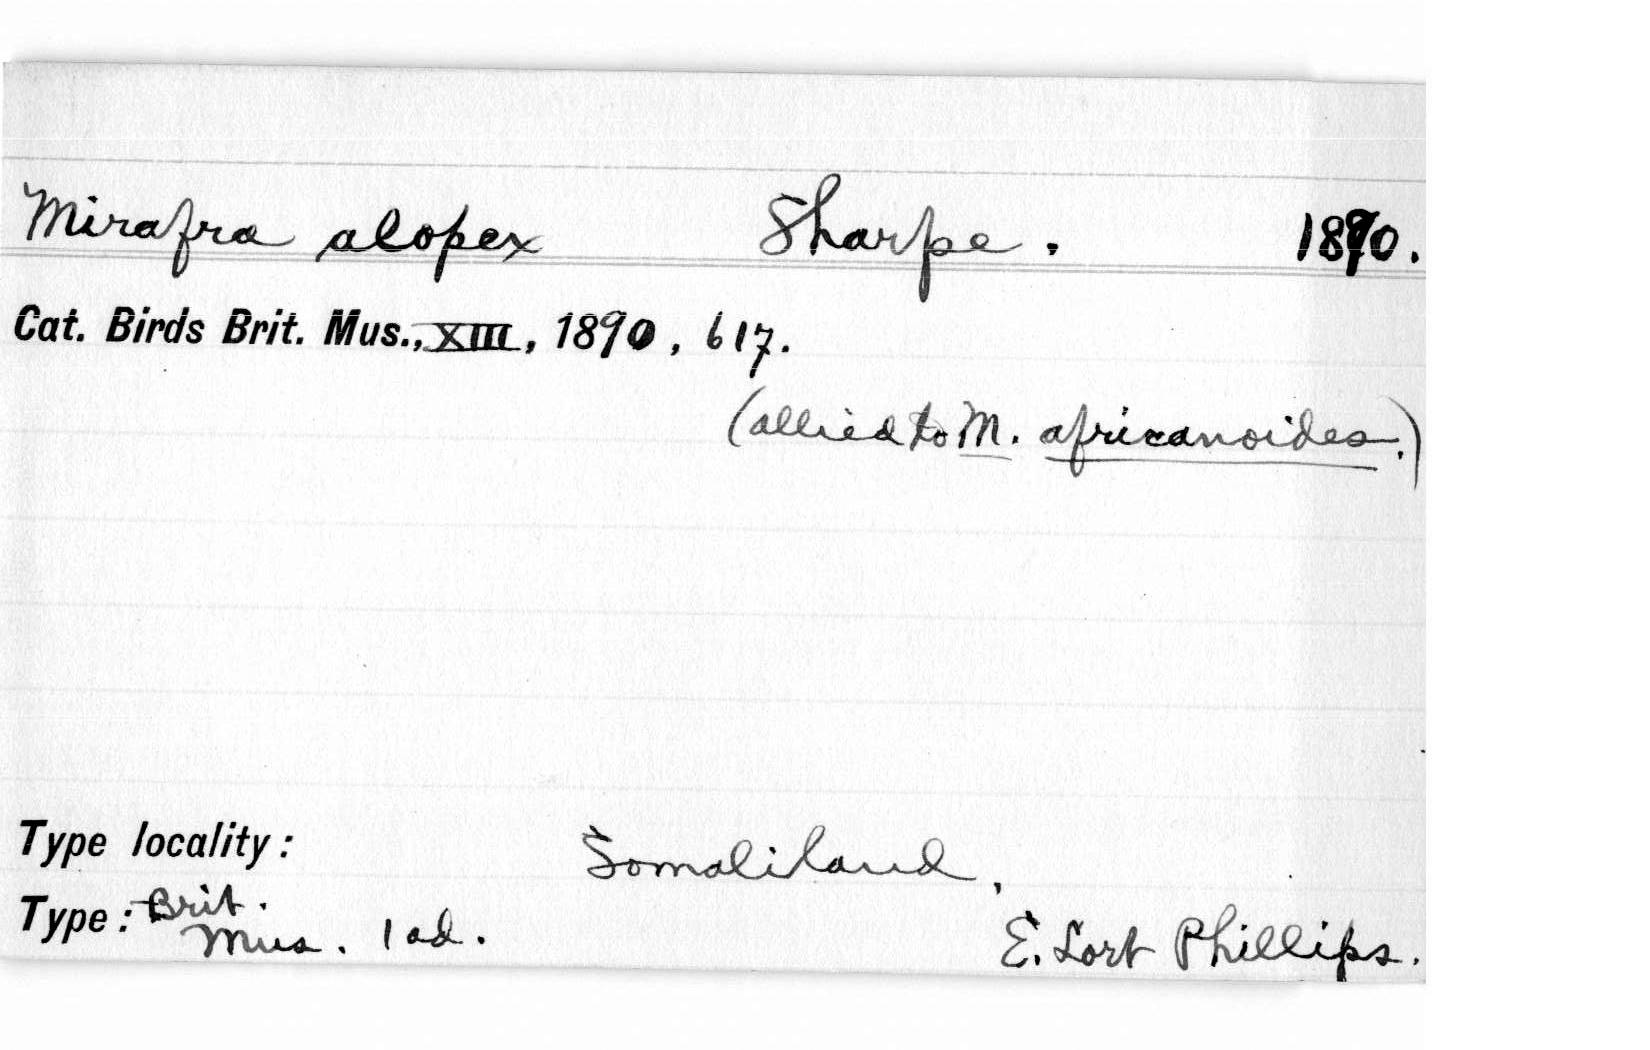 Mirafra alopex Sharpe. 1890.
Cat. Birds Brit. Mus., XIII, 1890, 617.
(allied to M. africanoides.)
Type locality: Somaliland,
Type: Brit. Mus. 1 ad. E. Lort Phillips.